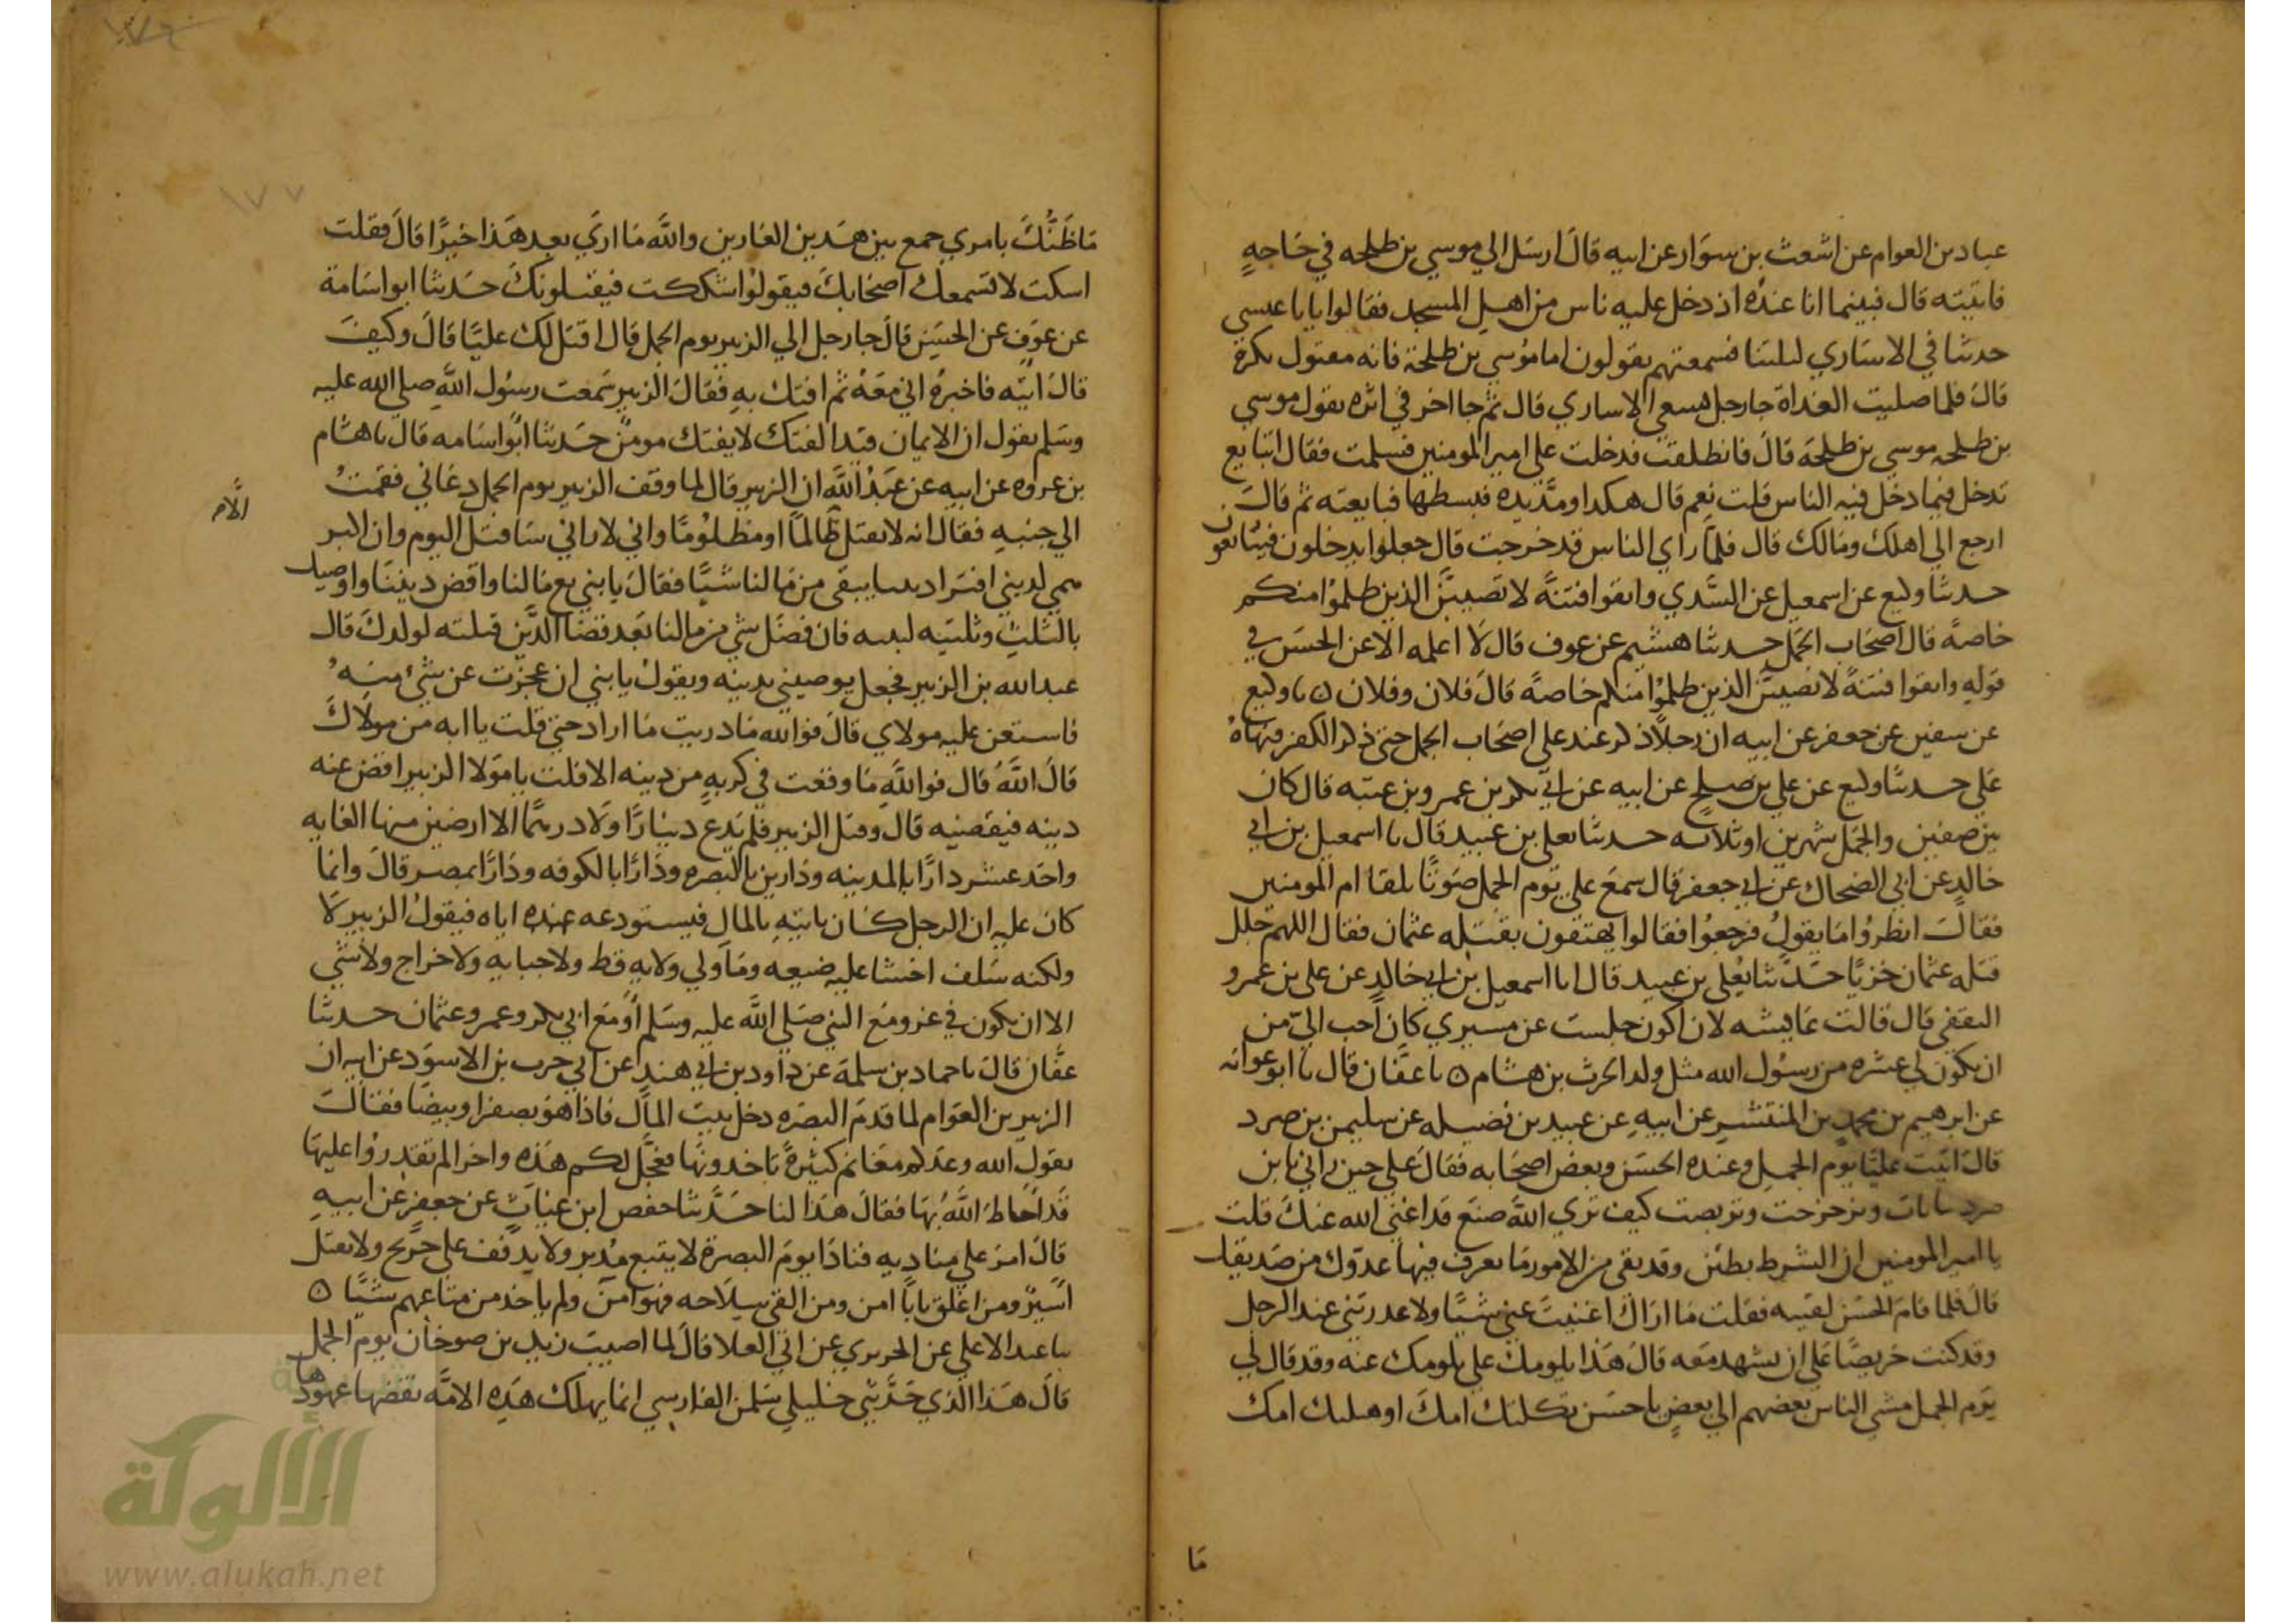 عباد بن العوام عن اشعث بن سوار عن ابيه قال ارسل الي موسي بن طلحه في حاجةٍ
فاتيته قال فبينما انا عنده اذ دخل عليه ناس من اهل المسجد فقالوا يا با عيسي
حدثنا في الاساري ليلتنا فسمعتهم يقولون اما موسي بن طلحة فانه مقتول بكرة
قال فلما صليت الغداة جا رجل يسعي الاساري قال ثم جا اخر في اثره يقول موسي
بن طلحه موسي بن طلحة قال فانطلقت فدخلت علي امير المومنين فسلمت فقال اتبايع
تدخل فيما دخل فيه الناس قلت نعم قال هكدا ومد يده فبسطها فبايعته ثم قال
ارجع الي اهلك ومالك قال فلما راي الناس قد خرجت قال جعلوا يدخلون فيبايعون
حدثنا وكيع عن اسمعيل عن السدي واتقوا فتنة لا تصيبن الذين ظلموا منكم
خاصة قال اصحاب الجمل حدثنا هشيم عن عوف قال لا اعلمه الا عن الحسن في
قوله واتقوا فتنة لا تصيبن الذين ظلموا منكم خاصة قال فلان وفلان ٥ نا وكيع
عن سفين عن جعفر عن ابيه ان رجلا ذكر عند علي اصحاب الجمل حتي ذكر الكفر فنهاه
علي حدثنا وكيع عن علي بن صلح عن ابيه عن ابي بكر بن عمرو بن عتبه قال كان
بين صفين والجمل شهرين او ثلاثه حدثنا يعلي بن عبيد قال نا اسمعيل بن ابي
خالد عن ابي الضحاك عن ابي جعفر قال سمع علي يوم الجمل صوتا تلقا ام المومنين
فقال انظروا ما يقول فرجعوا فقالوا يهتفون بقتله عثمان فقال اللهم جلل
قتله عثمان خزيا حدثنا يعلي بن عبيد قال انا اسمعيل بن ابي خالد عن علي بن عمرو
الثقفي قال قالت عايشه لان اكون جلست عن مسيري كان احب الي من
ان يكون لي عشره من رسول الله مثل ولد الحرث بن هشام ٥ نا عفان قال نا ابو عوانه
عن ابرهيم بن محمد بن المنتشر عن ابيه عن عبيد بن نضيله عن سليمن بن صرد
قال اتيت عليا يوم الجمل وعنده الحسن وبعض اصحابه فقال علي حين راني يا بن
صرد تنانات وتزحزحت وتربصت كيف تري الله صنع قد اغني الله عنك قلت
يا امير المومنين ان الشوط بطين وقد بقي من الامور ما تعرف فيها عدوك من صديقك
قال فلما قام الحسن لقيته فقلت ما اراك اغنيت عني شيا ولا عدرتني عند الرجل
وقد كنت حريصا علي ان تشهد معه قال هذا يلومك علي يلومك عنه وقد قال لي
يوم الجمل مشي الناس بعضهم الي بعض يا حسن ثكلتك امك او هبلتك امك
ما
ما ظنك بامري جمع بين هدين الغارين والله ما اري بعد هذا خيرا قال فقلت
اسكت لا تسمعك اصحابك فيقولوا شككت فيقتلونك حدثنا ابو اسامة
عن عوف عن الحسن قال جا رجل الي الزبير يوم الجمل قال اقتل لك عليا قال وكيف
قال اتيه فاخبره اني معه ثم افتك به فقال الزبير سمعت رسول الله صلي الله عليه
وسلم يقول ان الايمان قيد الفتك لا يفتك مومن حدثنا ابو اسامه قال نا هشام
بن عروه عن ابيه عن عبد الله ان الزبير قال لما وقف الزبير يوم الجمل دعاني فقمت
الي جنبه فقال انه لا يقتل ظالما او مظلوما واني لا راني ساقتل اليوم وان اكبر
الام
همي لديني افترا ديننا يبقي من مالنا شيا فقال يا بني بع مالنا واقض ديننا واوصيك
بالثلث وثلثيه لبنيه فان فضل شي من مالنا بعد قضا الدين فثلثه لولدك قال
عبد الله بن الزبير فجعل يوصيني بدينه ويقول يا بني ان عجزت عن شئ منه
فاستعن عليه مولاي قال فوالله ما دريت ما اراد حتي قلت يا ابه من مولاك
قال الله قال فوالله ما وقعت في كربه من دينه الا قلت يا مولا الزبير اقض عنه
دينه فيقضيه قال وقتل الزبير فلم يدع دينارا ولا درهما الا ارضين منها الغابه
واحد عشر دارا بالمدينه ودارين بالبصره ودارا بالكوفه ودارا بمصر قال وانما
كان عليه ان الرجل كان ياتيه بالمال فيستودعه عنده اياه فيقول الزبير لا
ولكنه سلف اخشا عليه ضيعه وما ولي ولايه قط ولا جبايه ولا خراج ولا شي
الا ان يكون في غزو مع النبي صلي الله عليه وسلم او مع ابي بكر وعمر وعثمان حدثنا
عفان قال نا حماد بن سلمة عن داود بن ابي هند عن ابي حرب بن الاسود عن ابيه ان
الزبير بن العوام لما قدم البصره دخل بيت المال فاذا هو بصفرا وبيضا فقال
يقول الله وعدكم مغانم كثيرة تاخدونها فعجل لكم هذه واخرا لم تقدروا عليها
قد احاط الله بها فقال هذا لنا حدثنا حفص ابن غياث عن جعفر عن ابيه
قال امر علي مناديه فنادا يوم البصرة لا يتبع مدبر ولا يدفف علي جريح ولا يقتل
اسير ومن اغلق بابا امن ومن القي سلاحه فهو امن ولم ياخد من متاعهم شيا ٥
نا عبد الاعلي عن الجريري عن ابي العلا قال لما اصيب زيد بن صوحان يوم الجمل
قال هذا الذي حدثني خليلي سلمن الفارسي انما يهلك هذه الامه نقضها عهودها
١٧٧
الألوكة
www.alukah.net